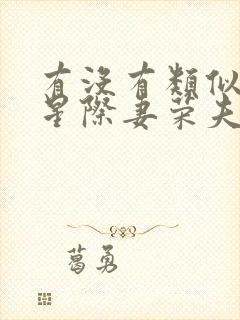 有沒有類似
星際妻荣夫
葛勇